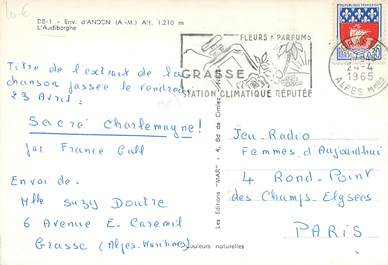 20€
DB-1 - Env. d'ANDON (A.-M.) Alt. 1.210 m
L'Audibergue
FLEURS & PARFUMS
GRASSE
STATION CLIMATIQUE RÉPUTÉE
24-4
1965
ALPES Mmes
Titre de l'extrait de la
chanson passée le vendredi
23 Avril :
Sacré Charlemagne!
par France Gall
Envoi de -
Mlle Suzy Doutre
6 Avenue E. Caremil
Grasse (Alpes-Maritimes)
Les Editions "MAR" - 4, Bd de Cimiez,
Couleurs naturelles
Jeu-Radio
Femmes d'Aujourd'hui
4 Rond-Point
des Champs-Elysées
PARIS